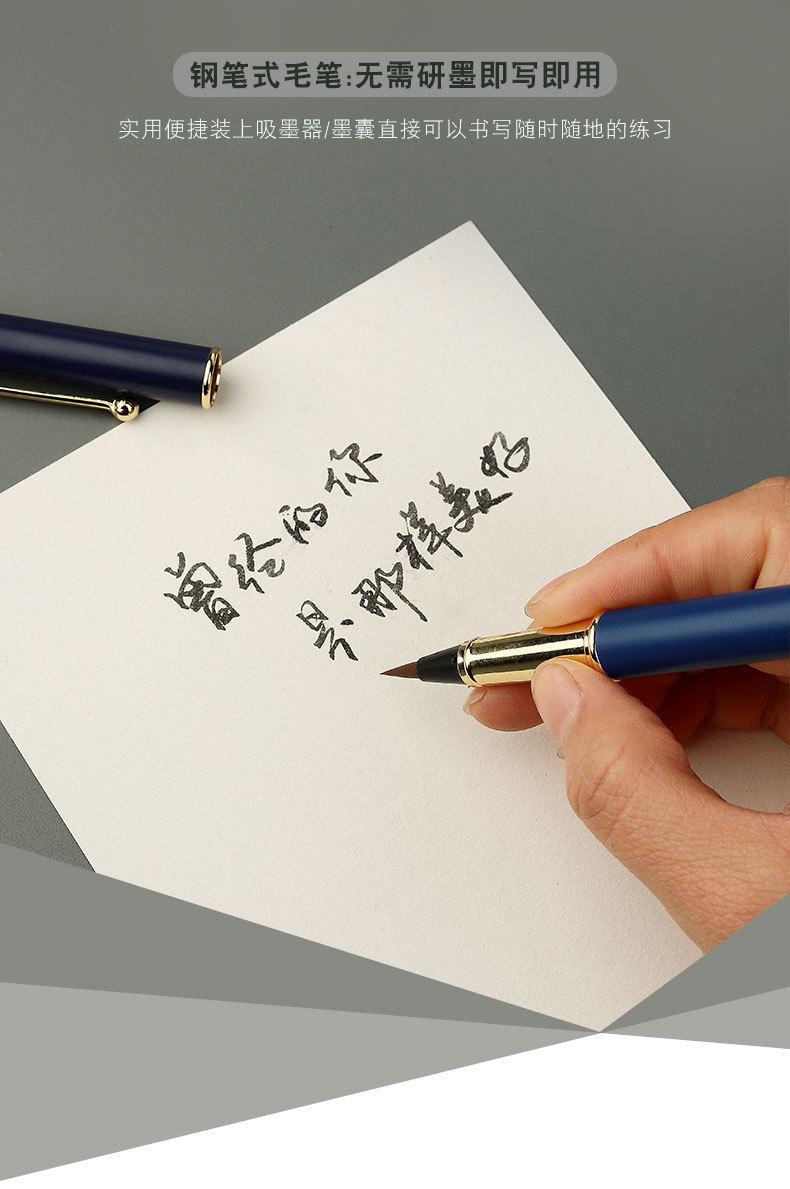 钢笔式毛笔:无需研墨即写即用
实用便捷装上吸墨器/墨囊直接可以书写随时随地的练习
曾经的你
是那样美好